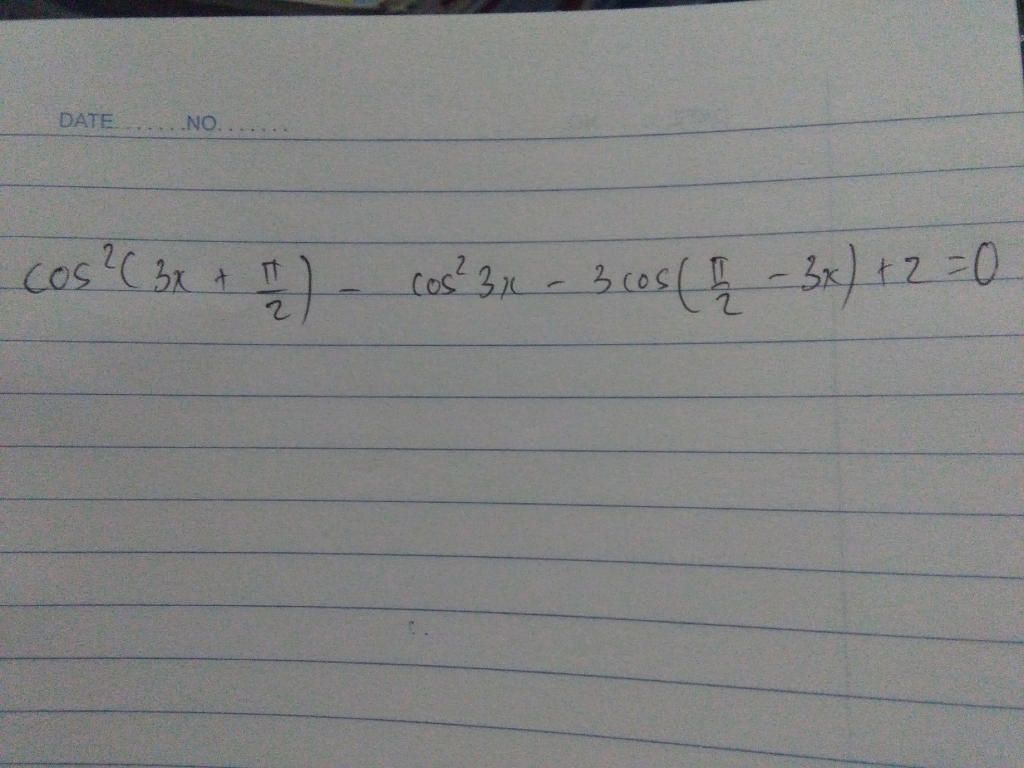 DATE.......NO.......
cos²(3x + π/2) - cos²3x - 3cos(π/2 - 3x) + 2 = 0